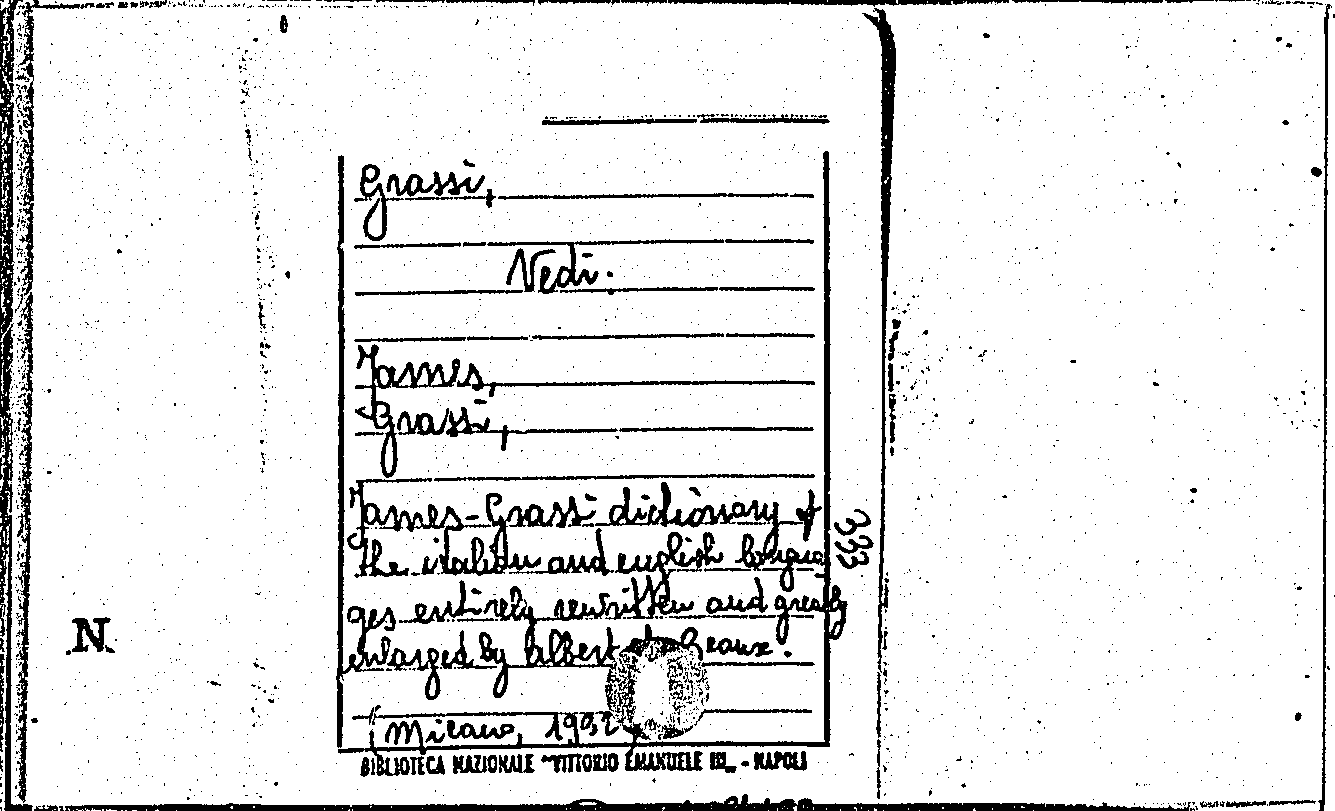 Grassi,
Vedi:
James,
Grassi,
James-Grassi dictionary of
the italian and english langua
ges entirely rewritten and greatly
enlarged by Albert de Beaux.
(Milano, 1932)
333
N.
BIBLIOTECA NAZIONALE "VITTORIO EMANUELE III" - NAPOLI